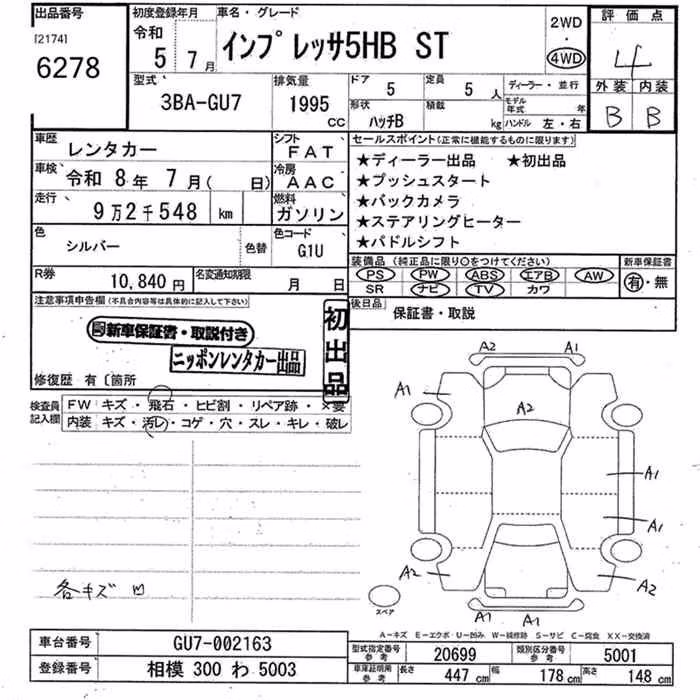 出品番号
[2174]
6278
初度登録年月
令和
5 7月
車名・グレード
インプレッサ5HB ST
2WD
・
4WD
評価点
4
外装 内装
B B
型式
3BA-GU7
排気量
1995
CC
ドア
5
定員
5 人
形状
ハッチB
積載
kg
ディーラー・並行
モデル年式 年
ハンドル 左・右
車歴
レンタカー
シフト
FAT
車検
令和 8年 7月( 日)
冷房
AAC
走行
9万2千548 km
燃料
ガソリン
色
シルバー
色替
色コード
G1U
R券
10,840円
名変通知期限
月 日
セールスポイント(正常に機能するものに限ります)
★ディーラー出品 ★初出品
★プッシュスタート
★バックカメラ
★ステアリングヒーター
★パドルシフト
装備品 (純正品に限り○をつけてください)
PS PW ABS エアB AW
SR ナビ TV カワ
新車保証書
有・無
後日品
保証書・取説
注意事項申告欄(不具合内容等は具体的に記入して下さい)
新車保証書・取説付き
ニッポンレンタカー出品
初出品
修復歴 有〔箇所
検査員記入欄
FW キズ・飛石・ヒビ割・リペア跡・×要
内装 キズ・汚レ・コゲ・穴・スレ・キレ・破レ
各キズ 凹
A2 A1
A1
A2
A1
A1
A2
A2
A1 A1
スペア
A－キズ E－エクボ・U－凹み W－補修跡 S－サビ C－腐食 XX－交換済
車台番号
GU7-002163
登録番号
相模 300 わ 5003
型式指定番号
参考
20699
類別区分番号
参考
5001
車庫証明用
参考
長さ
447 cm
幅
178 cm
高さ
148 cm